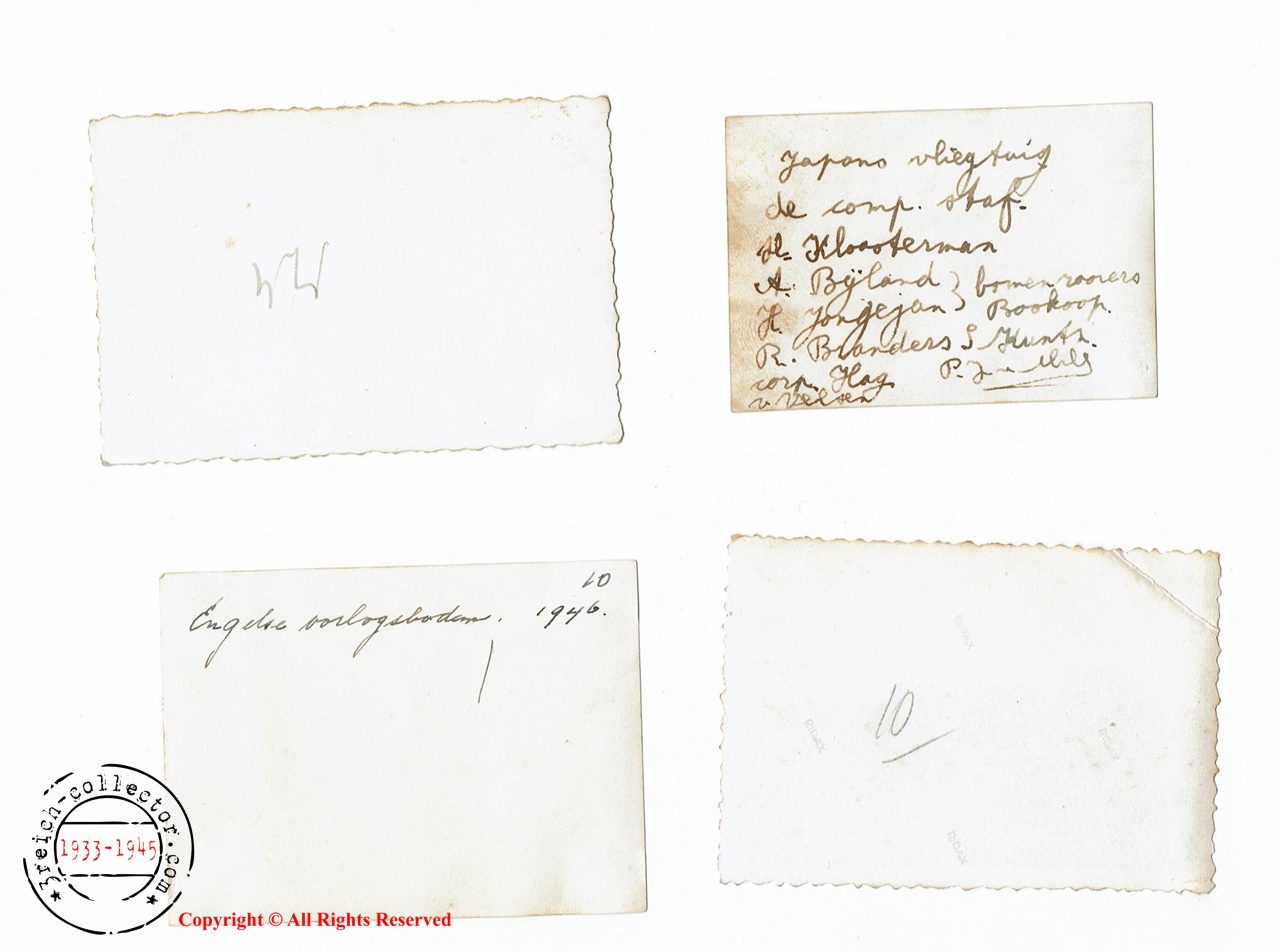 44
Japans vliegtuig
de comp. staf.
H. Kloosterman
A. Bijland } bomenrooiers
H. Jongejan } Boskoop.
R. Branders
corp. Hag
v. Velsen
P. J.
10
Engelse oorlogsbodem. 1946.
RIDAX
RIDAX
10
RIDAX
RIDAX
3reich-collector.com
1933-1945
Copyright © All Rights Reserved